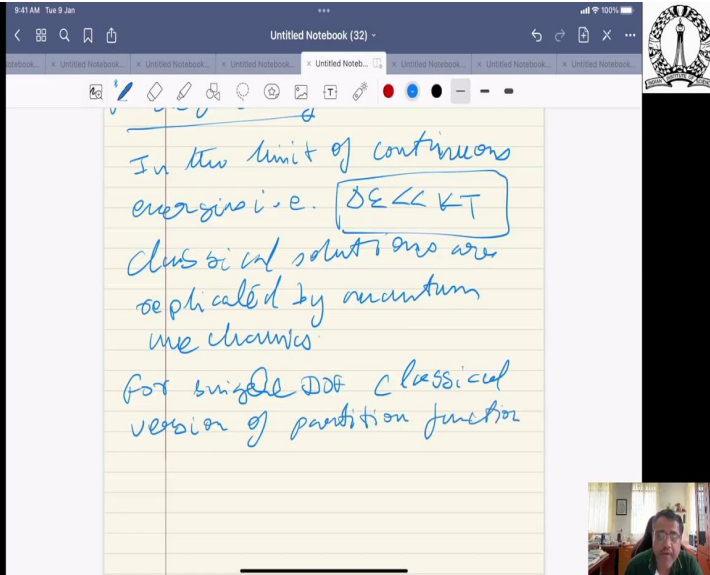 9:41 AM Tue 9 Jan
100%
Untitled Notebook (32)
otebook... × Untitled Notebook... × Untitled Notebook... × Untitled Notebook... × Untitled Noteb... × Untitled Notebook... × Untitled Notebook... × Untitled Notebook...
In the limit of continuous
energies i.e. Δε << KT
Classical solutions are
replicated by quantum
mechanics.
For single DOF classical
version of partition function